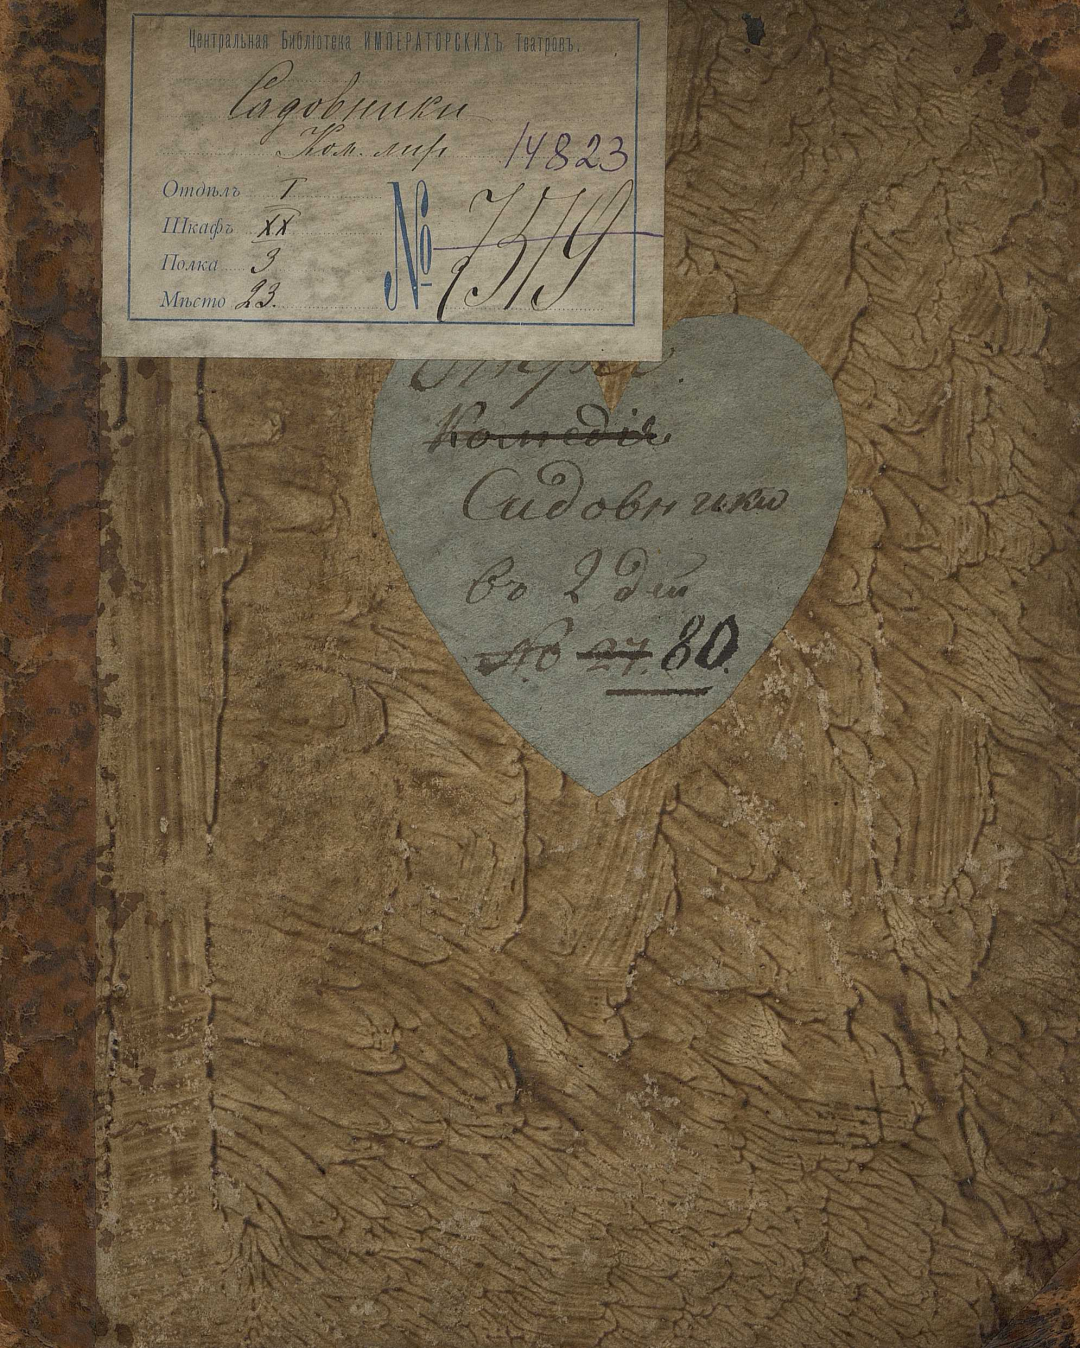 Центральная Библіотека ИМПЕРАТОРСКИХЪ Театровъ.
Садовники
Ком. лир.
14823
Отдѣлъ I
Шкафъ XX
Полка 3
Мѣсто 23.
№ 7579
Опера.
Комедія
Садовники
въ 2 дей
№ 27. 80.